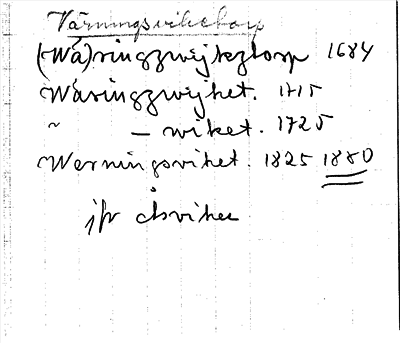 Värningsviketorp
(Wå)ringzwijkztorp 1684
Wåringzwijket. 1715
~ — wiket. 1725
Werningsviket. 1825 1880
jfr Åsviken